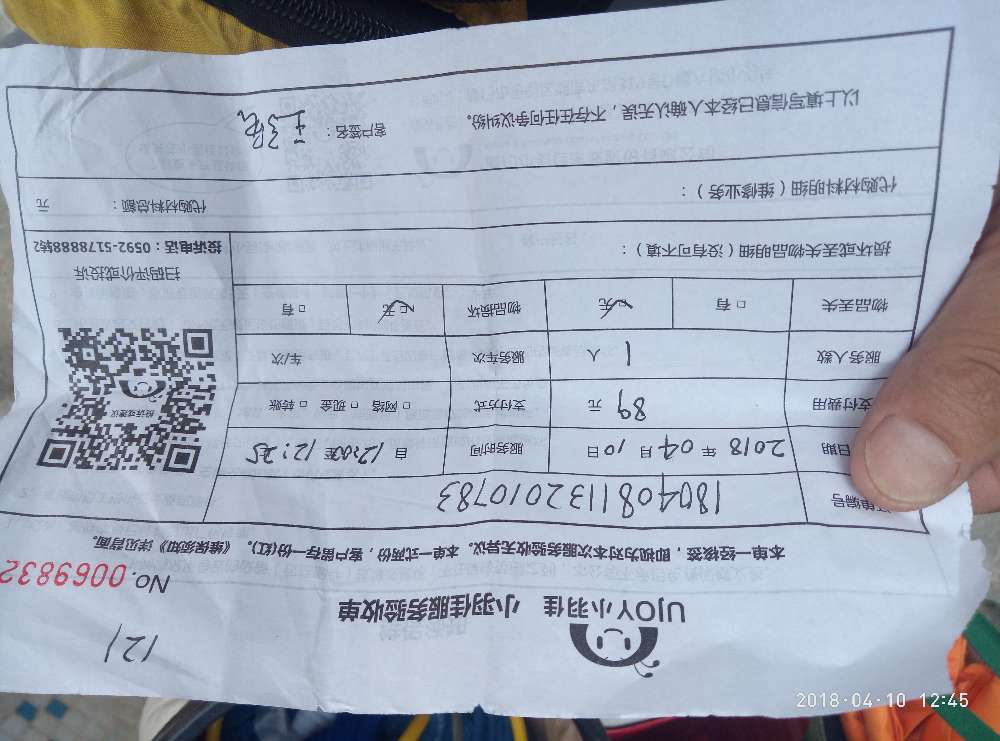 121
UJOY小羽佳 小羽佳服务验收单
No. 0069832
本单一经核签，即视为对本次服务验收无异议。本单一式两份，客户留存一份(红)。《维保须知》详见背面。
单编号 1804081132010783
日期 2018 年 04 月 10 日 服务时间 自 12:00 至 12:25
支付费用 89 元 支付方式 □ 网络 □ 现金 □ 转账
服务人数 1 人 服务车次 车/次
物品丢失 □ 有 ☑ 无 物品损坏 ☑ 无 □ 有
投诉或建议
扫码评价或投诉
投诉电话：0592-5178888转2
损坏或丢失物品明细（没有可不填）：
代购材料明细（维修业务）： 代购材料总额： 元
以上填写信息已经本人确认无误，不存在任何争议纠纷。 客户签名：
2018-04-10 12:45